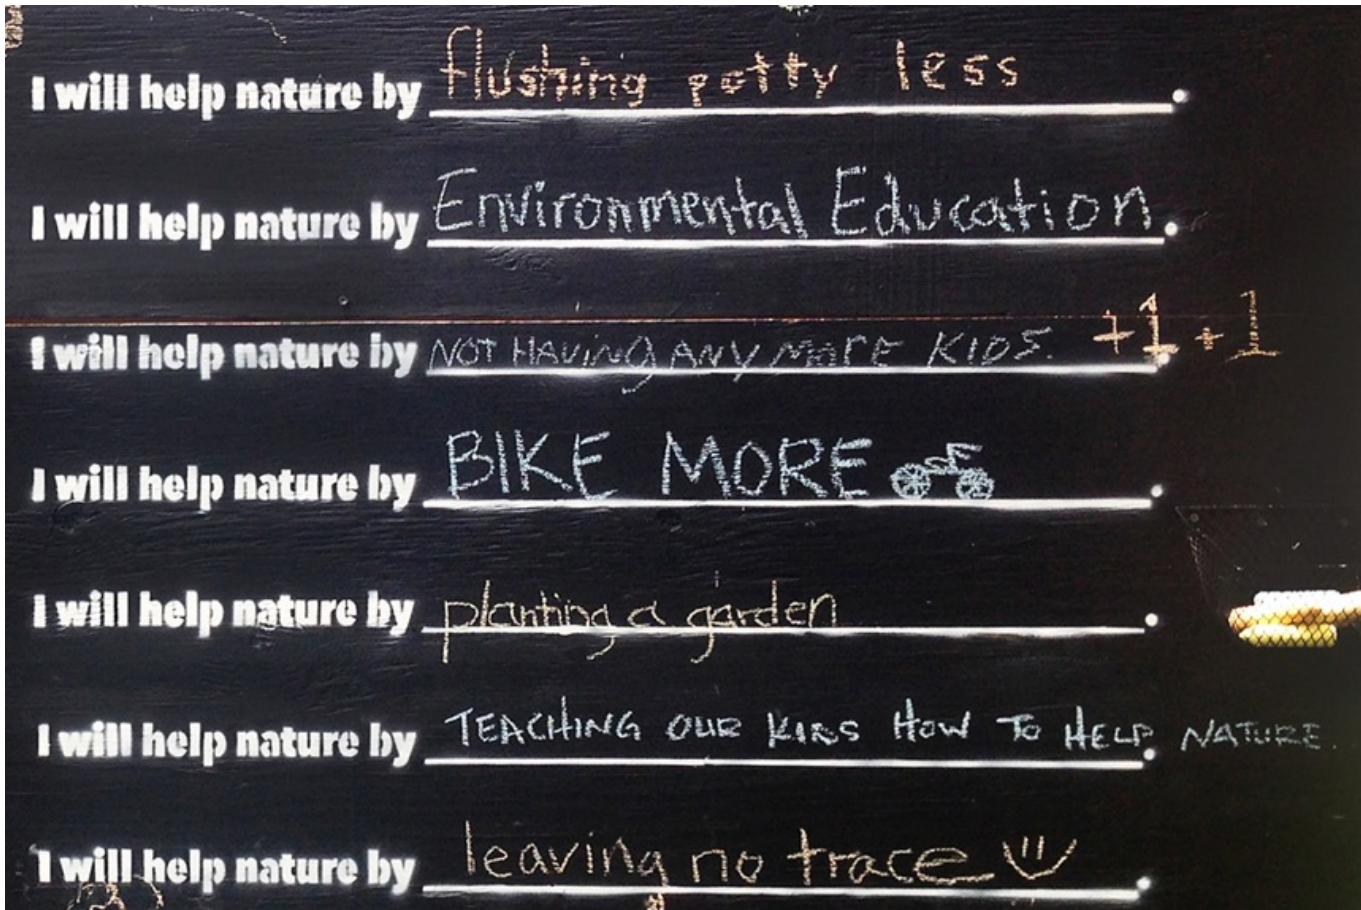 I will help nature by flushing potty less.
I will help nature by Environmental Education.
I will help nature by NOT HAVING ANY MORE KIDS. +1 +1
I will help nature by BIKE MORE.
I will help nature by planting a garden.
I will help nature by TEACHING OUR KIDS HOW TO HELP NATURE.
I will help nature by leaving no trace.